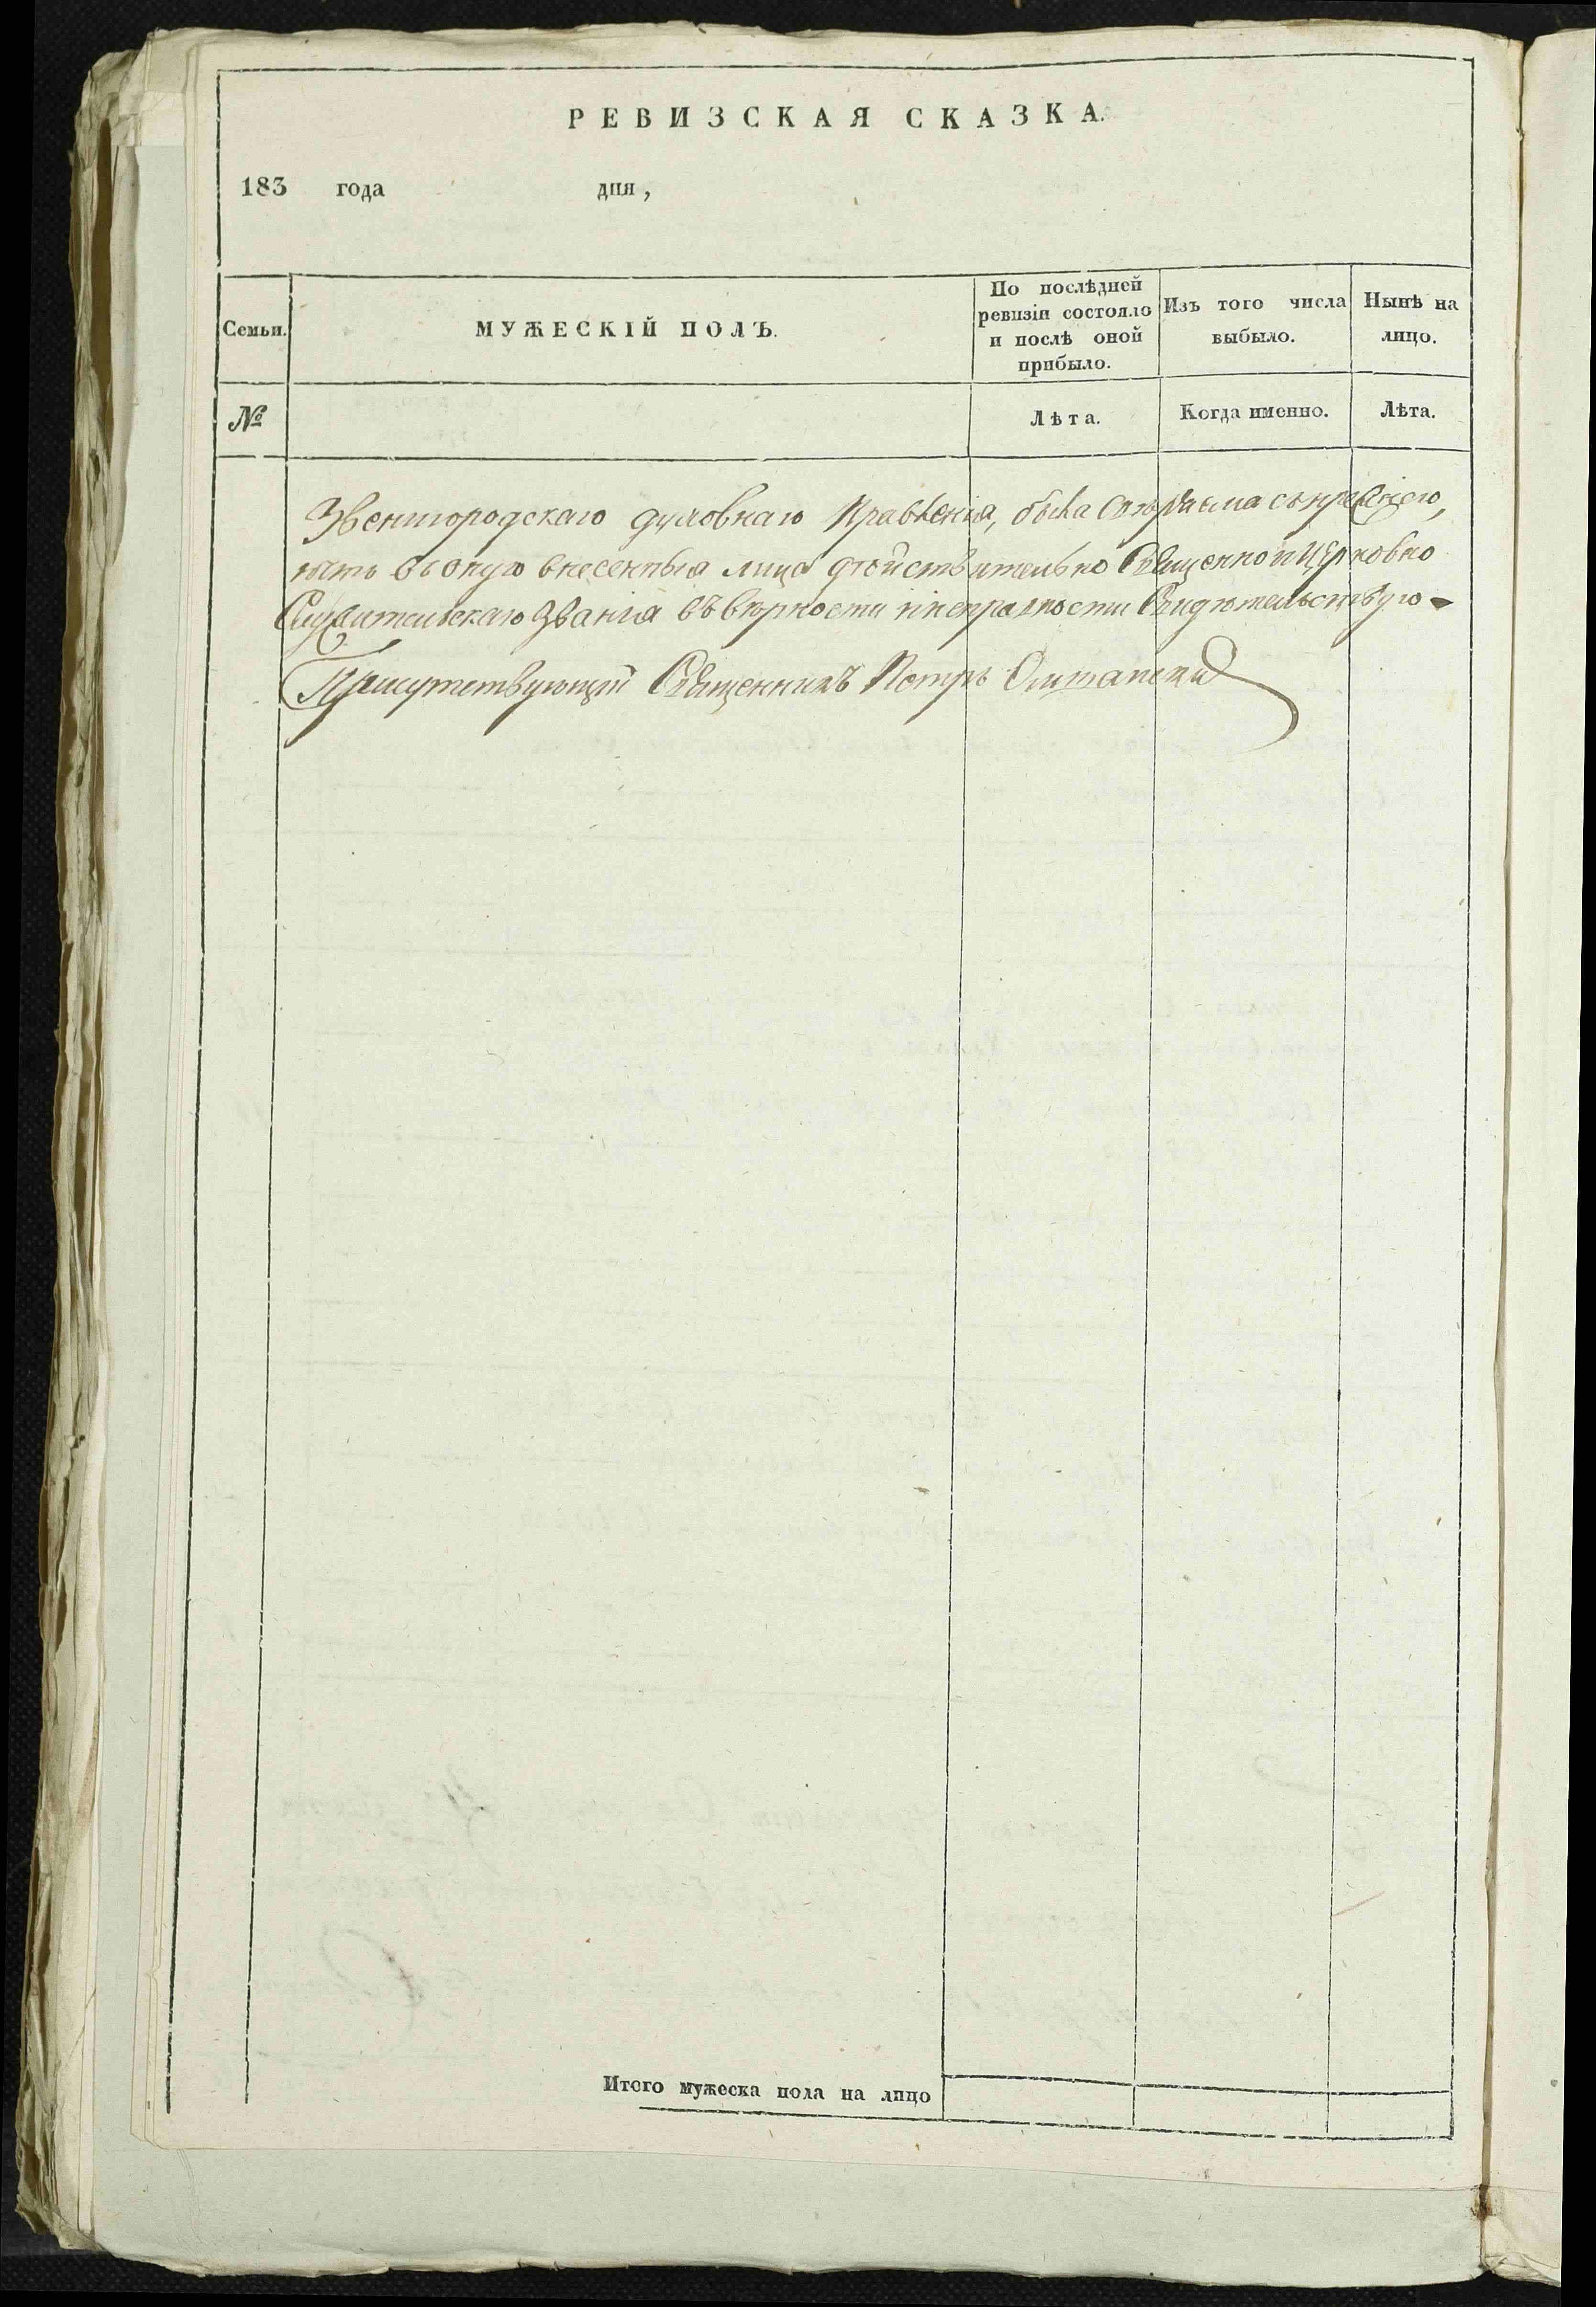 РЕВИЗСКАЯ СКАЗКА.
183 года дня,
Семьи.
МУЖЕСКІЙ ПОЛЪ.
По послѣдней
ревизіи состояло
и послѣ оной
прибыло.
Изъ того числа
выбыло.
Нынѣ на
лицо.
№
Лѣта.
Когда именно.
Лѣта.
Звенигородскаго духовнаго Правленія, была
внесенныя лица дѣйствительно Священно и Церковно
Служительскаго Званія въ вѣрности Свидѣтельствую
Присутствующій Священникъ Петръ
Итого мужеска пола на лицо